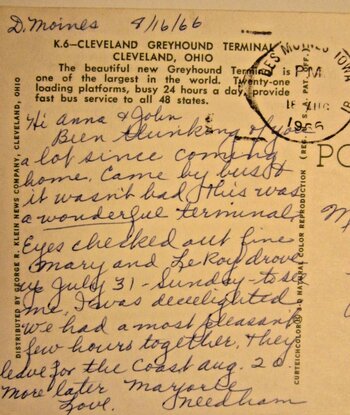 D. Moines 8/16/66
K.6—CLEVELAND GREYHOUND TERMINAL
CLEVELAND, OHIO
The beautiful new Greyhound Terminal is
one of the largest in the world. Twenty-one
loading platforms, busy 24 hours a day, provide
fast bus service to all 48 states.
DES MOINES IOWA
PM
18 AUG
1966
Hi Anna & John
Been thinking of you
a lot since coming
home. Came by bus &
it wasn't bad, this was
a wonderful terminal.
Eyes checked out fine
Mary and LeRoy drove
July 31 - Sunday - to see
me, I was deeelighted
we had a most pleasant
few hours together, they
leave for the Coast Aug. 20
more later Marjorie
Love. Needham
DISTRIBUTED BY GEORGE R. KLEIN NEWS COMPANY, CLEVELAND, OHIO
CURTEICHCOLOR® 3-D NATURAL COLOR REPRODUCTION (REG. U.S.A. PAT. OFF.)
PO
M